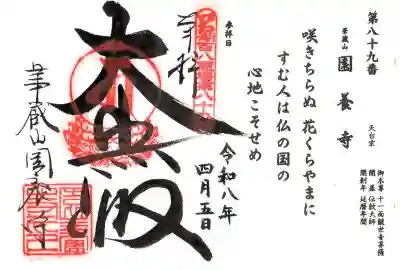 第八十九番
華蔵山
園養寺
天台宗
御本尊 十一面観世音菩薩
開基 伝教大師
開創年 延暦年間
咲きちらぬ 花くらやまに
すむ人は仏の国の
心地こそせめ
参拝日
令和八年
四月五日
奉拝
大悲殿
華蔵山園養寺